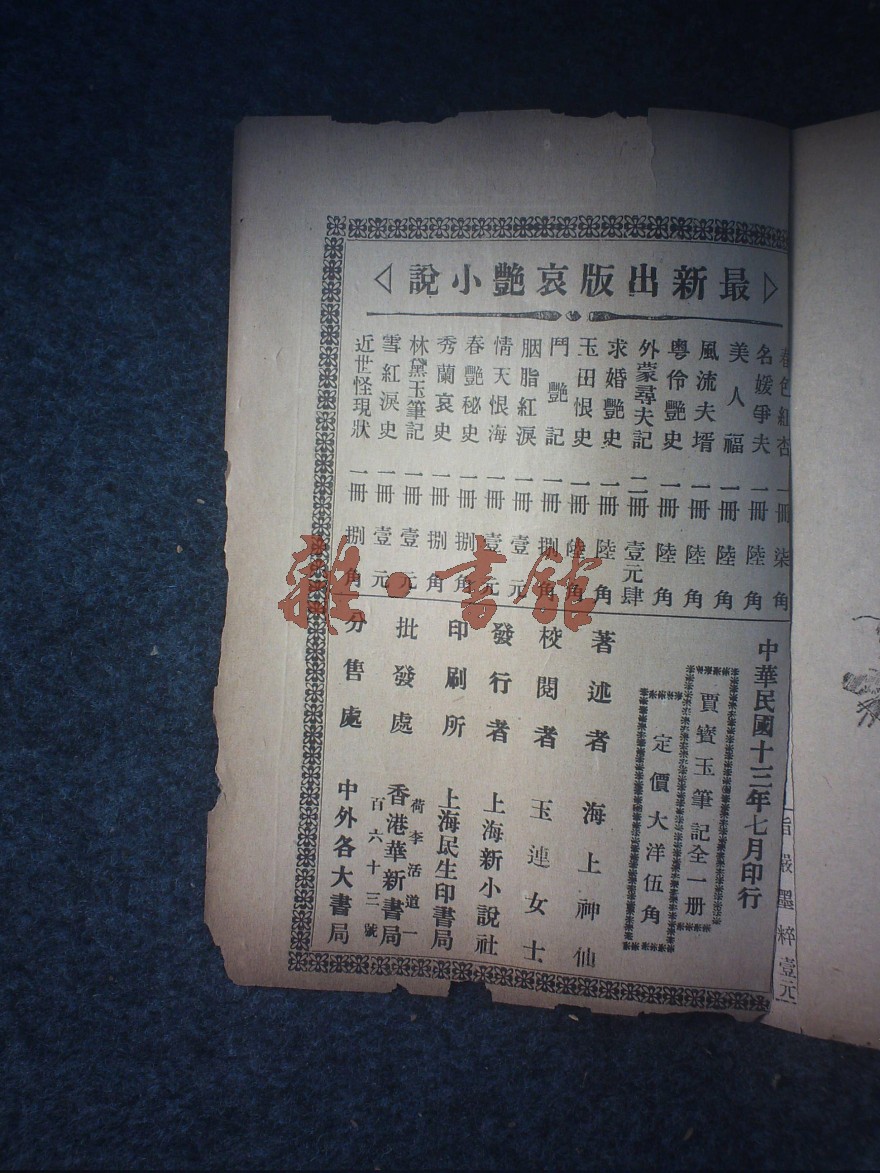 最新出版哀艷小說
春色紅杏 一冊 柒角
名媛爭夫 一冊 陸角
美人福 一冊 陸角
風流夫壻 一冊 陸角
粵伶艷史 一冊 陸角
外蒙尋夫記 二冊 壹元肆
求婚艷史 一冊 陸角
玉田恨史 一冊 陸角
鬥艷記 一冊 捌角
胭脂紅淚 一冊 壹元
情天恨海 一冊 壹元
春艷秘史 一冊 捌角
秀蘭哀史 一冊 捌角
林黛玉筆記 一冊 壹元
雪紅淚史 一冊 壹元
近世怪現狀 一冊 捌角
中華民國十三年七月印行
賈寶玉筆記全一册
定價大洋伍角
著述者 海上神仙
校閱者 玉連女士
發行者 上海新小說社
印刷所 上海民生印書局
批發處 香港華新書局
荷李活道一百六十三號
分售處 中外各大書局
墨粹壹元
雜·書館